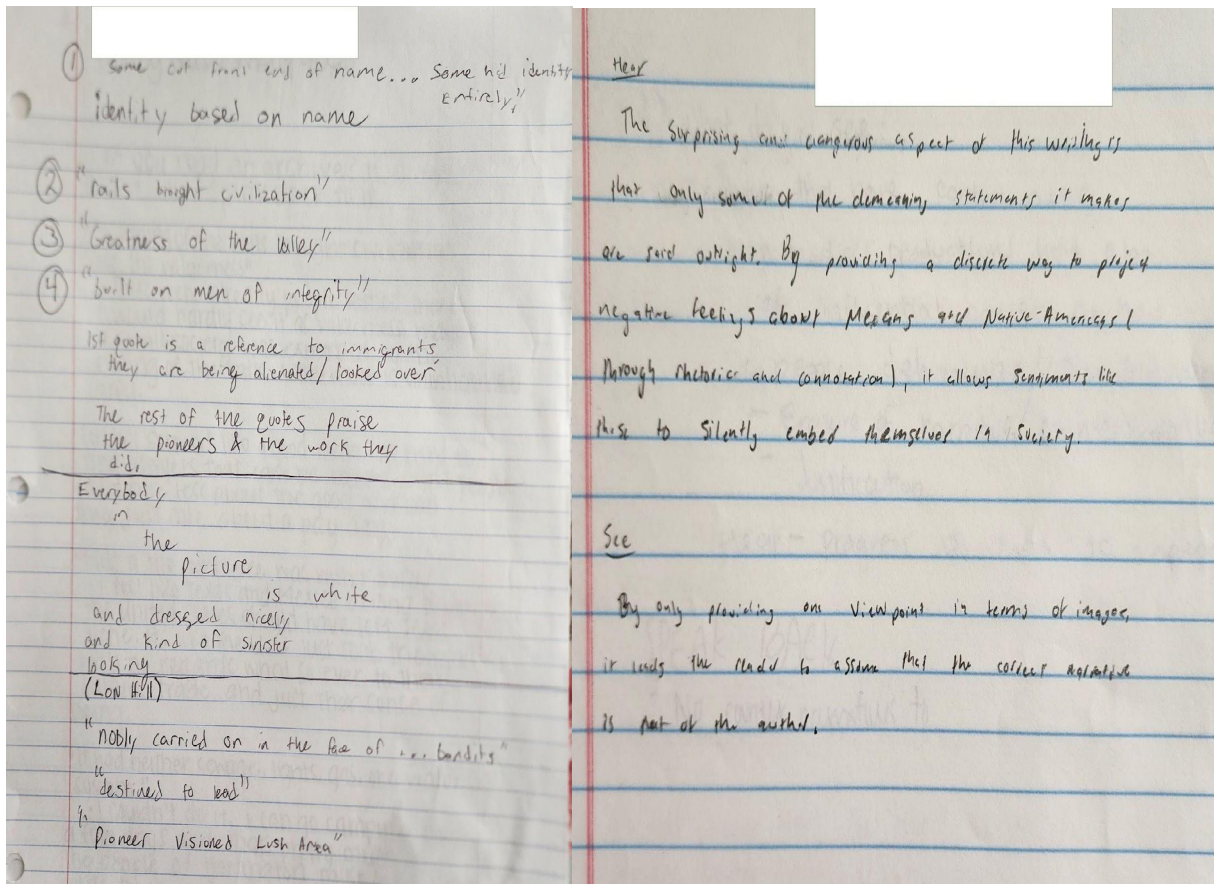 ① "Some cut front end of name... Some hid identity
entirely"
identity based on name
② "rails brought civilization"
③ "Greatness of the Valley"
④ "built on men of integrity"
1st quote is a reference to immigrants
they are being alienated/looked over
The rest of the quotes praise
the pioneers & the work they
did.
Everybody
in
the
picture
is white
and dressed nicely
and kind of sinister
looking
(Lon Hill)
"nobly carried on in the face of ... bandits"
"destined to lead"
"Pioneer Visioned Lush Area"
Hear
The surprising and dangerous aspect of this writing is
that only some of the demeaning statements it makes
are said outright. By providing a discrete way to project
negative feelings about Mexicans and Native-Americans (
through rhetoric and connotation), it allows sentiments like
these to silently embed themselves in society.
See
By only providing one viewpoint in terms of images,
it leads the reader to assume that the correct narrative
is that of the author.